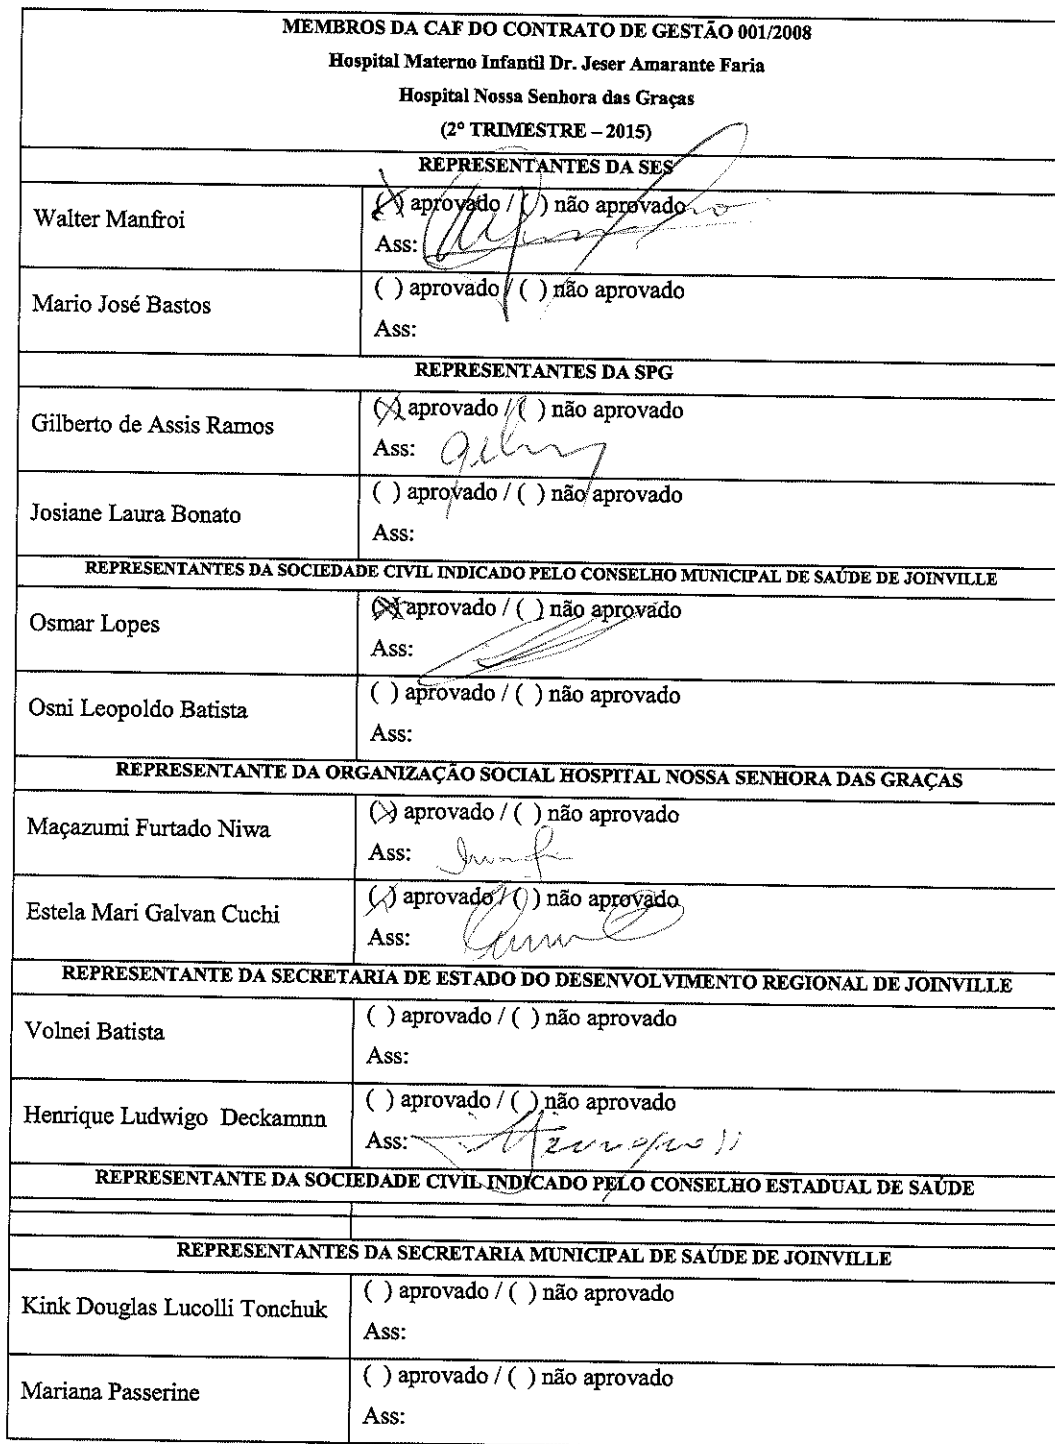 MEMBROS DA CAF DO CONTRATO DE GESTÃO 001/2008
Hospital Materno Infantil Dr. Jeser Amarante Faria
Hospital Nossa Senhora das Graças
(2º TRIMESTRE – 2015)
REPRESENTANTES DA SES
Walter Manfroi
(X) aprovado / ( ) não aprovado
Ass:
Mario José Bastos
( ) aprovado / ( ) não aprovado
Ass:
REPRESENTANTES DA SPG
Gilberto de Assis Ramos
(X) aprovado / ( ) não aprovado
Ass:
Josiane Laura Bonato
( ) aprovado / ( ) não aprovado
Ass:
REPRESENTANTES DA SOCIEDADE CIVIL INDICADO PELO CONSELHO MUNICIPAL DE SAÚDE DE JOINVILLE
Osmar Lopes
(X) aprovado / ( ) não aprovado
Ass:
Osni Leopoldo Batista
( ) aprovado / ( ) não aprovado
Ass:
REPRESENTANTE DA ORGANIZAÇÃO SOCIAL HOSPITAL NOSSA SENHORA DAS GRAÇAS
Maçazumi Furtado Niwa
(X) aprovado / ( ) não aprovado
Ass:
Estela Mari Galvan Cuchi
(X) aprovado / ( ) não aprovado
Ass:
REPRESENTANTE DA SECRETARIA DE ESTADO DO DESENVOLVIMENTO REGIONAL DE JOINVILLE
Volnei Batista
( ) aprovado / ( ) não aprovado
Ass:
Henrique Ludwigo Deckamnn
( ) aprovado / ( ) não aprovado
Ass:
REPRESENTANTE DA SOCIEDADE CIVIL INDICADO PELO CONSELHO ESTADUAL DE SAÚDE
REPRESENTANTES DA SECRETARIA MUNICIPAL DE SAÚDE DE JOINVILLE
Kink Douglas Lucolli Tonchuk
( ) aprovado / ( ) não aprovado
Ass:
Mariana Passerine
( ) aprovado / ( ) não aprovado
Ass: